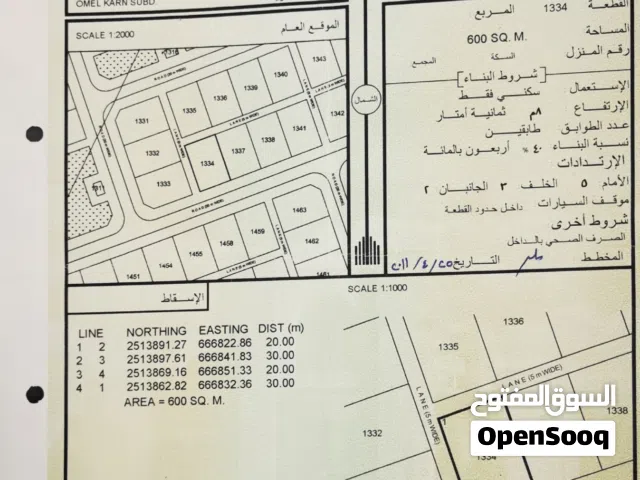 OMEL KARN SUBD.
القطعة 1334 المربع
المساحة 600 SQ. M.
رقم المنزل السكة المجمع
شروط البناء
الإستعمال سكني فقط
الإرتفاع ٨م ثمانية أمتار
عدد الطوابق طابقين
نسبة البناء ٤٠ % أربعون بالمائة
الإرتدادات
الأمام ٥ الخلف ٣ الجانبان ٢
موقف السيارات داخل حدود القطعة
شروط أخرى
الصرف الصحي بالداخل
المخطط التاريخ
SCALE 1:2000 الموقع العام
الشمال
1316
1331
1332
1333
1335
1336
1339
1340
1343
1342
1334
1337
1338
1341
1311
1451
1454
1455
1458
1459
1462
1463
1461
الإسقاط
SCALE 1:1000
LINE NORTHING EASTING DIST (m)
1 2 2513891.27 666822.86 20.00
2 3 2513897.61 666841.83 30.00
3 4 2513869.16 666851.33 20.00
4 1 2513862.82 666832.36 30.00
AREA = 600 SQ. M.
1336
1335
LANE (5 m WIDE)
LANE (5 m WIDE)
1332
1
1334
1338
السوق المفتوح
OpenSooq